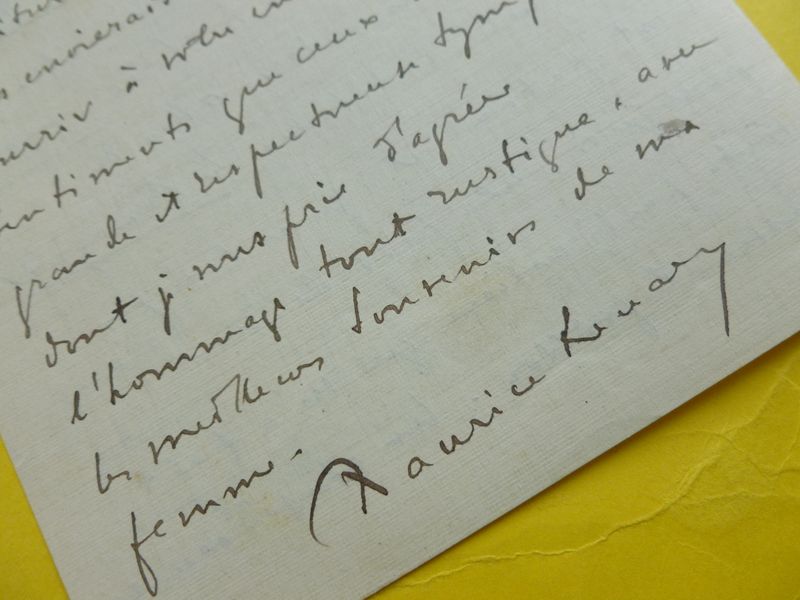 à votre
sentiments que ceux
grande et respectueuse symp
dont je vous prie d'agréer
l'hommage tout rustique, avec
les meilleurs souvenirs de ma
femme.
Maurice Renard